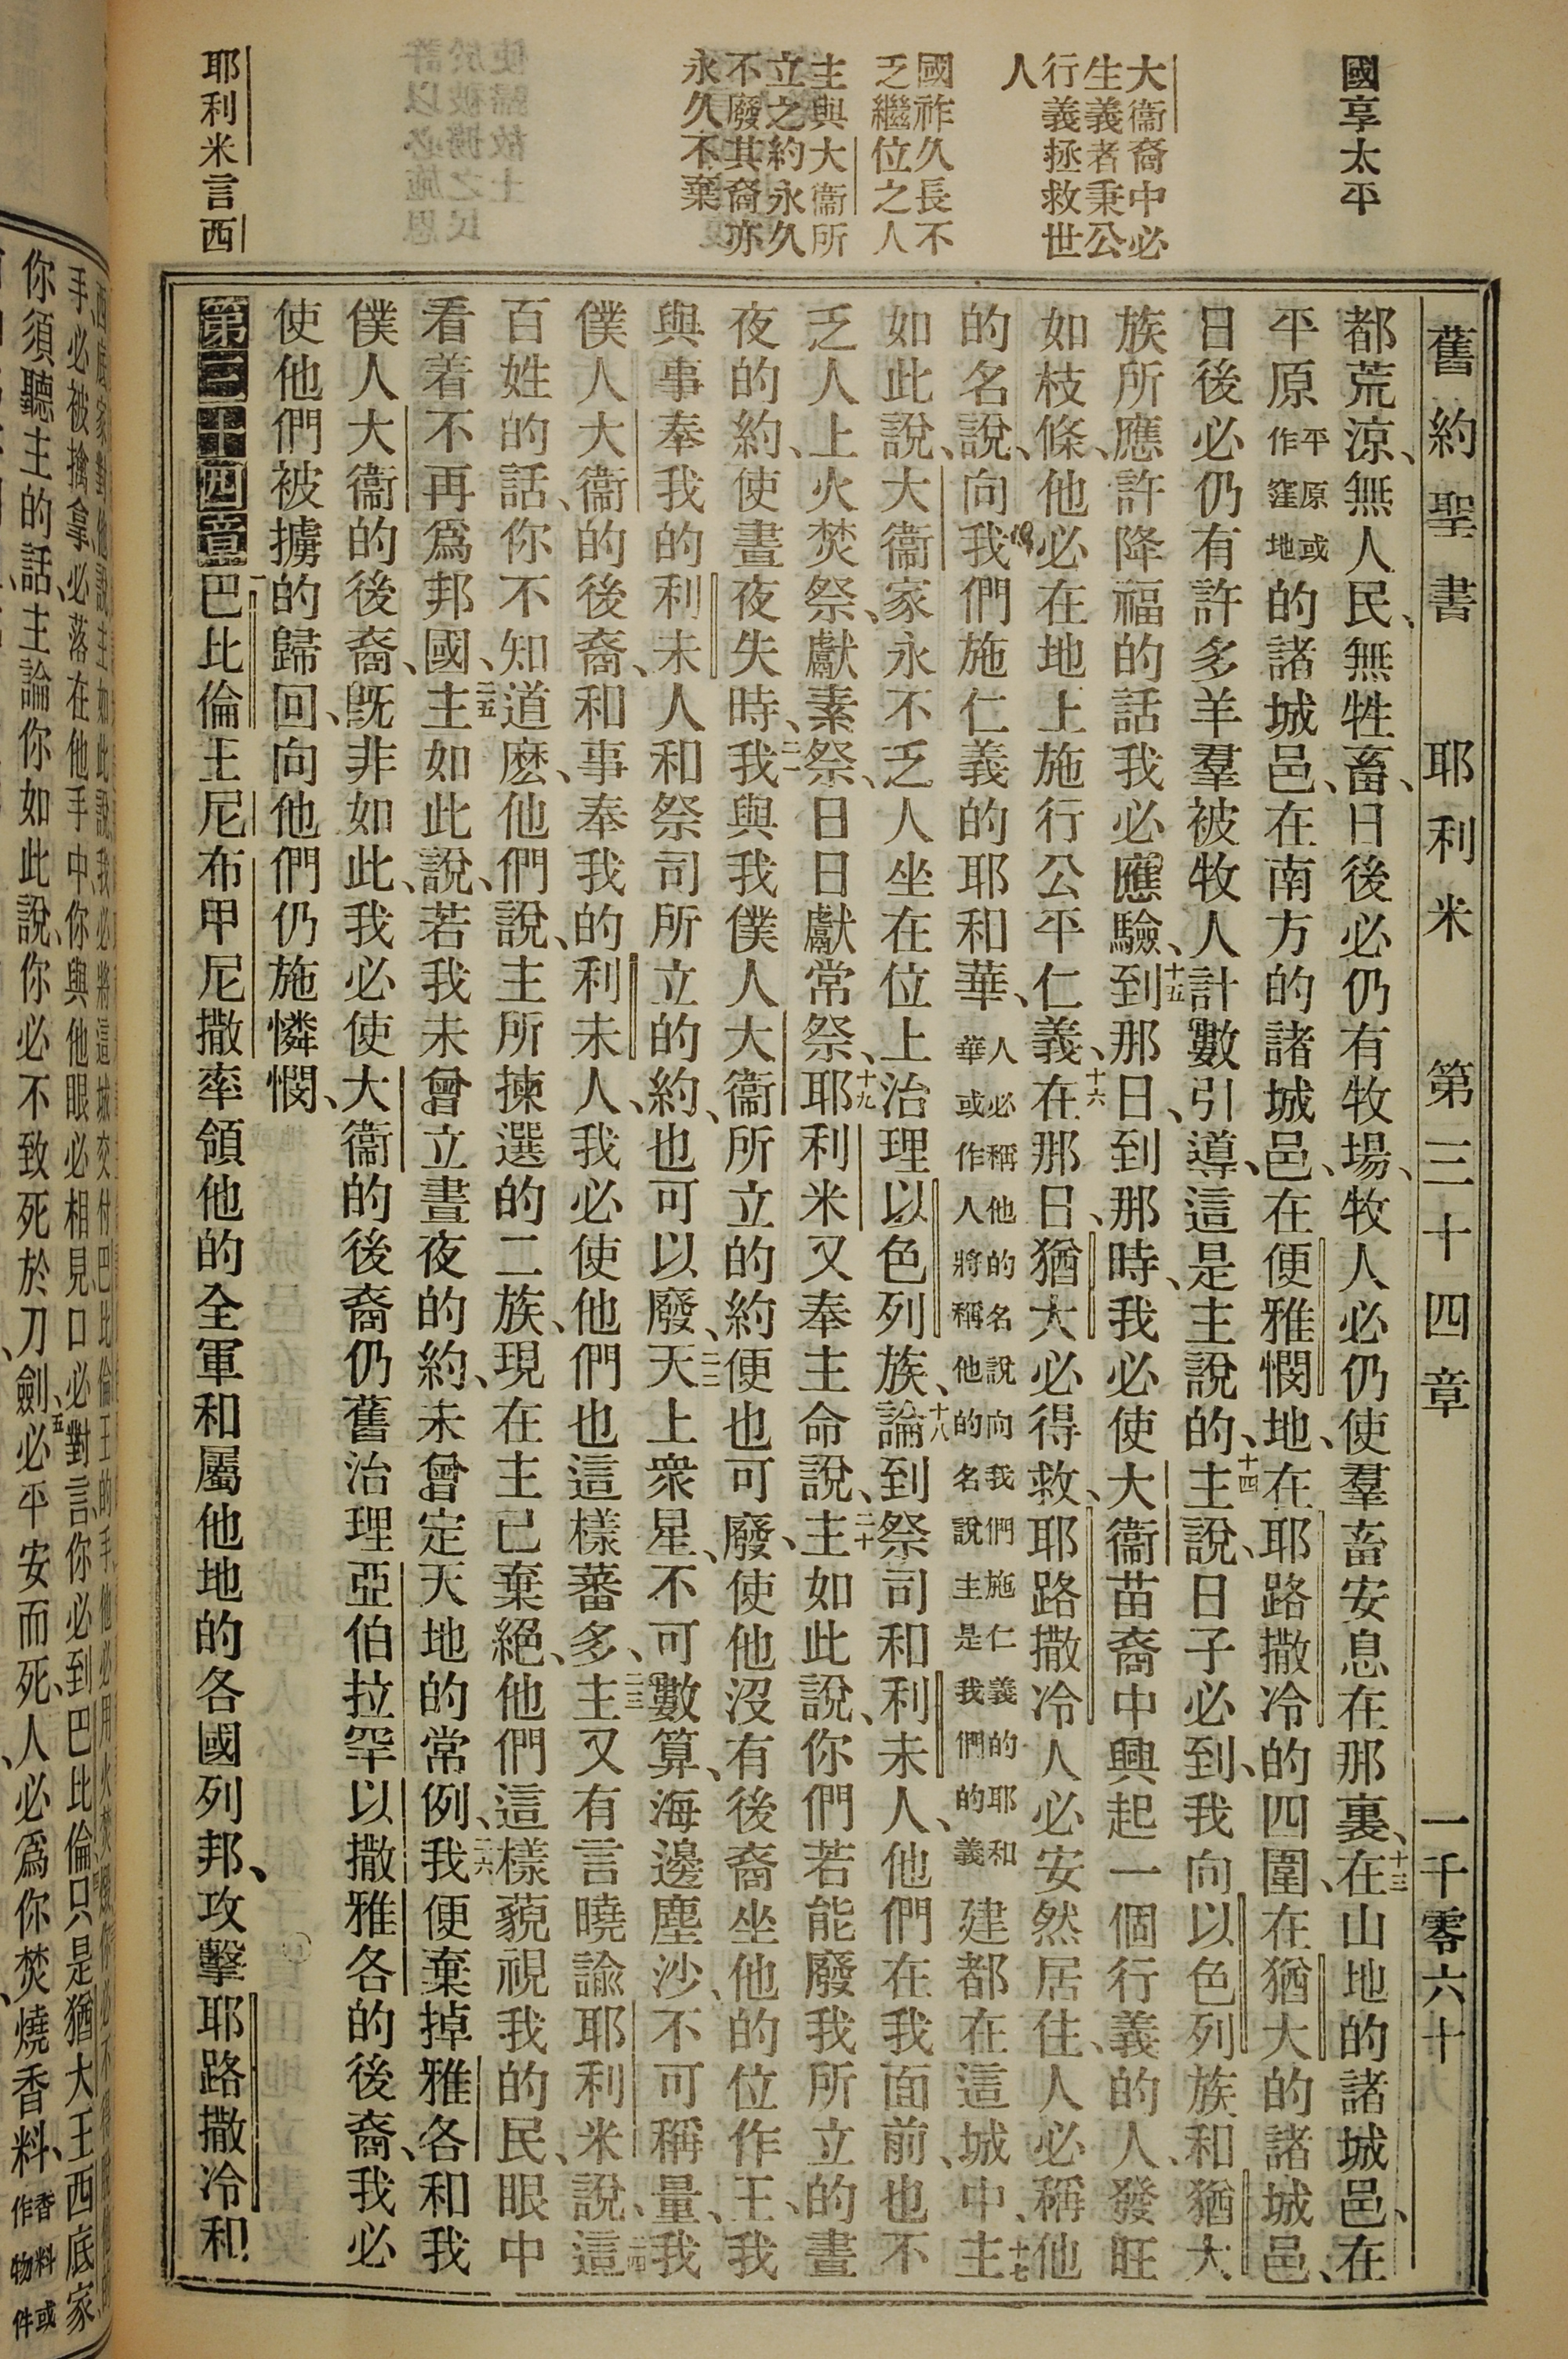 國享太平
大衞裔中必
生義者秉公
行義拯救世
人
國祚久長不
乏繼位之人
主與大衞所
立之約永久
不廢其裔亦
永久不棄
耶利米言西
舊約聖書 耶利米 第三十四章 一千零六十
都荒涼、無人民、無牲畜、日後必仍有牧場、牧人必仍使羣畜安息在那裏、十三在山地的諸城邑、在
平原平原或作窪地的諸城邑、在南方的諸城邑、在便雅憫地、在耶路撒冷的四圍、在猶大的諸城邑、
日後必仍有許多羊羣被牧人計數引導、這是主說的、十四主說、日子必到、我向以色列族和猶大
族所應許降福的話我必應驗、十五到那日、到那時、我必使大衞苗裔中興起一個行義的人、發旺
如枝條、他必在地上施行公平仁義、十六在那日、猶大必得救、耶路撒冷人必安然居住、人必稱他
的名說、向我們施仁義的耶和華、人必稱他的名說向我們施仁義的耶和華或作人將稱他的名說主是我們的義建都在這城中、十七主
如此說、大衞家永不乏人坐在位上治理以色列族、十八論到祭司和利未人、他們在我面前、也不
乏人上火焚祭、獻素祭、日日獻常祭、十九耶利米又奉主命說、二十主如此說、你們若能廢我所立的晝
夜的約、使晝夜失時、二一我與我僕人大衞所立的約便也可廢、使他沒有後裔坐他的位作王、我
與事奉我的利未人和祭司所立的約、也可以廢、二二天上衆星、不可數算、海邊塵沙、不可稱量、我
僕人大衞的後裔、和事奉我的利未人、我必使他們也這樣蕃多、二三主又有言曉諭耶利米說、二四這
百姓的話、你不知道麼、他們說、主所揀選的二族、現在主已棄絕、他們這樣藐視我的民、眼中
看着不再爲邦國、二五主如此說、若我未曾立晝夜的約、未曾定天地的常例、二六我便棄掉雅各和我
僕人大衞的後裔、旣非如此、我必使大衞的後裔仍舊治理亞伯拉罕以撒雅各的後裔、我必
使他們被擄的歸回、向他們仍施憐憫、
第三十四章 一巴比倫王尼布甲尼撒率領他的全軍和屬他地的各國列邦、攻擊耶路撒冷和
手必被擒拿、必落在他手中、你與他眼必相見口必對言、你必到巴比倫只是猶大王西底家
你須聽主的話、主論你如此說、你必不致死於刀劍、五必平安而死、人必爲你焚燒香料、香料或作物件